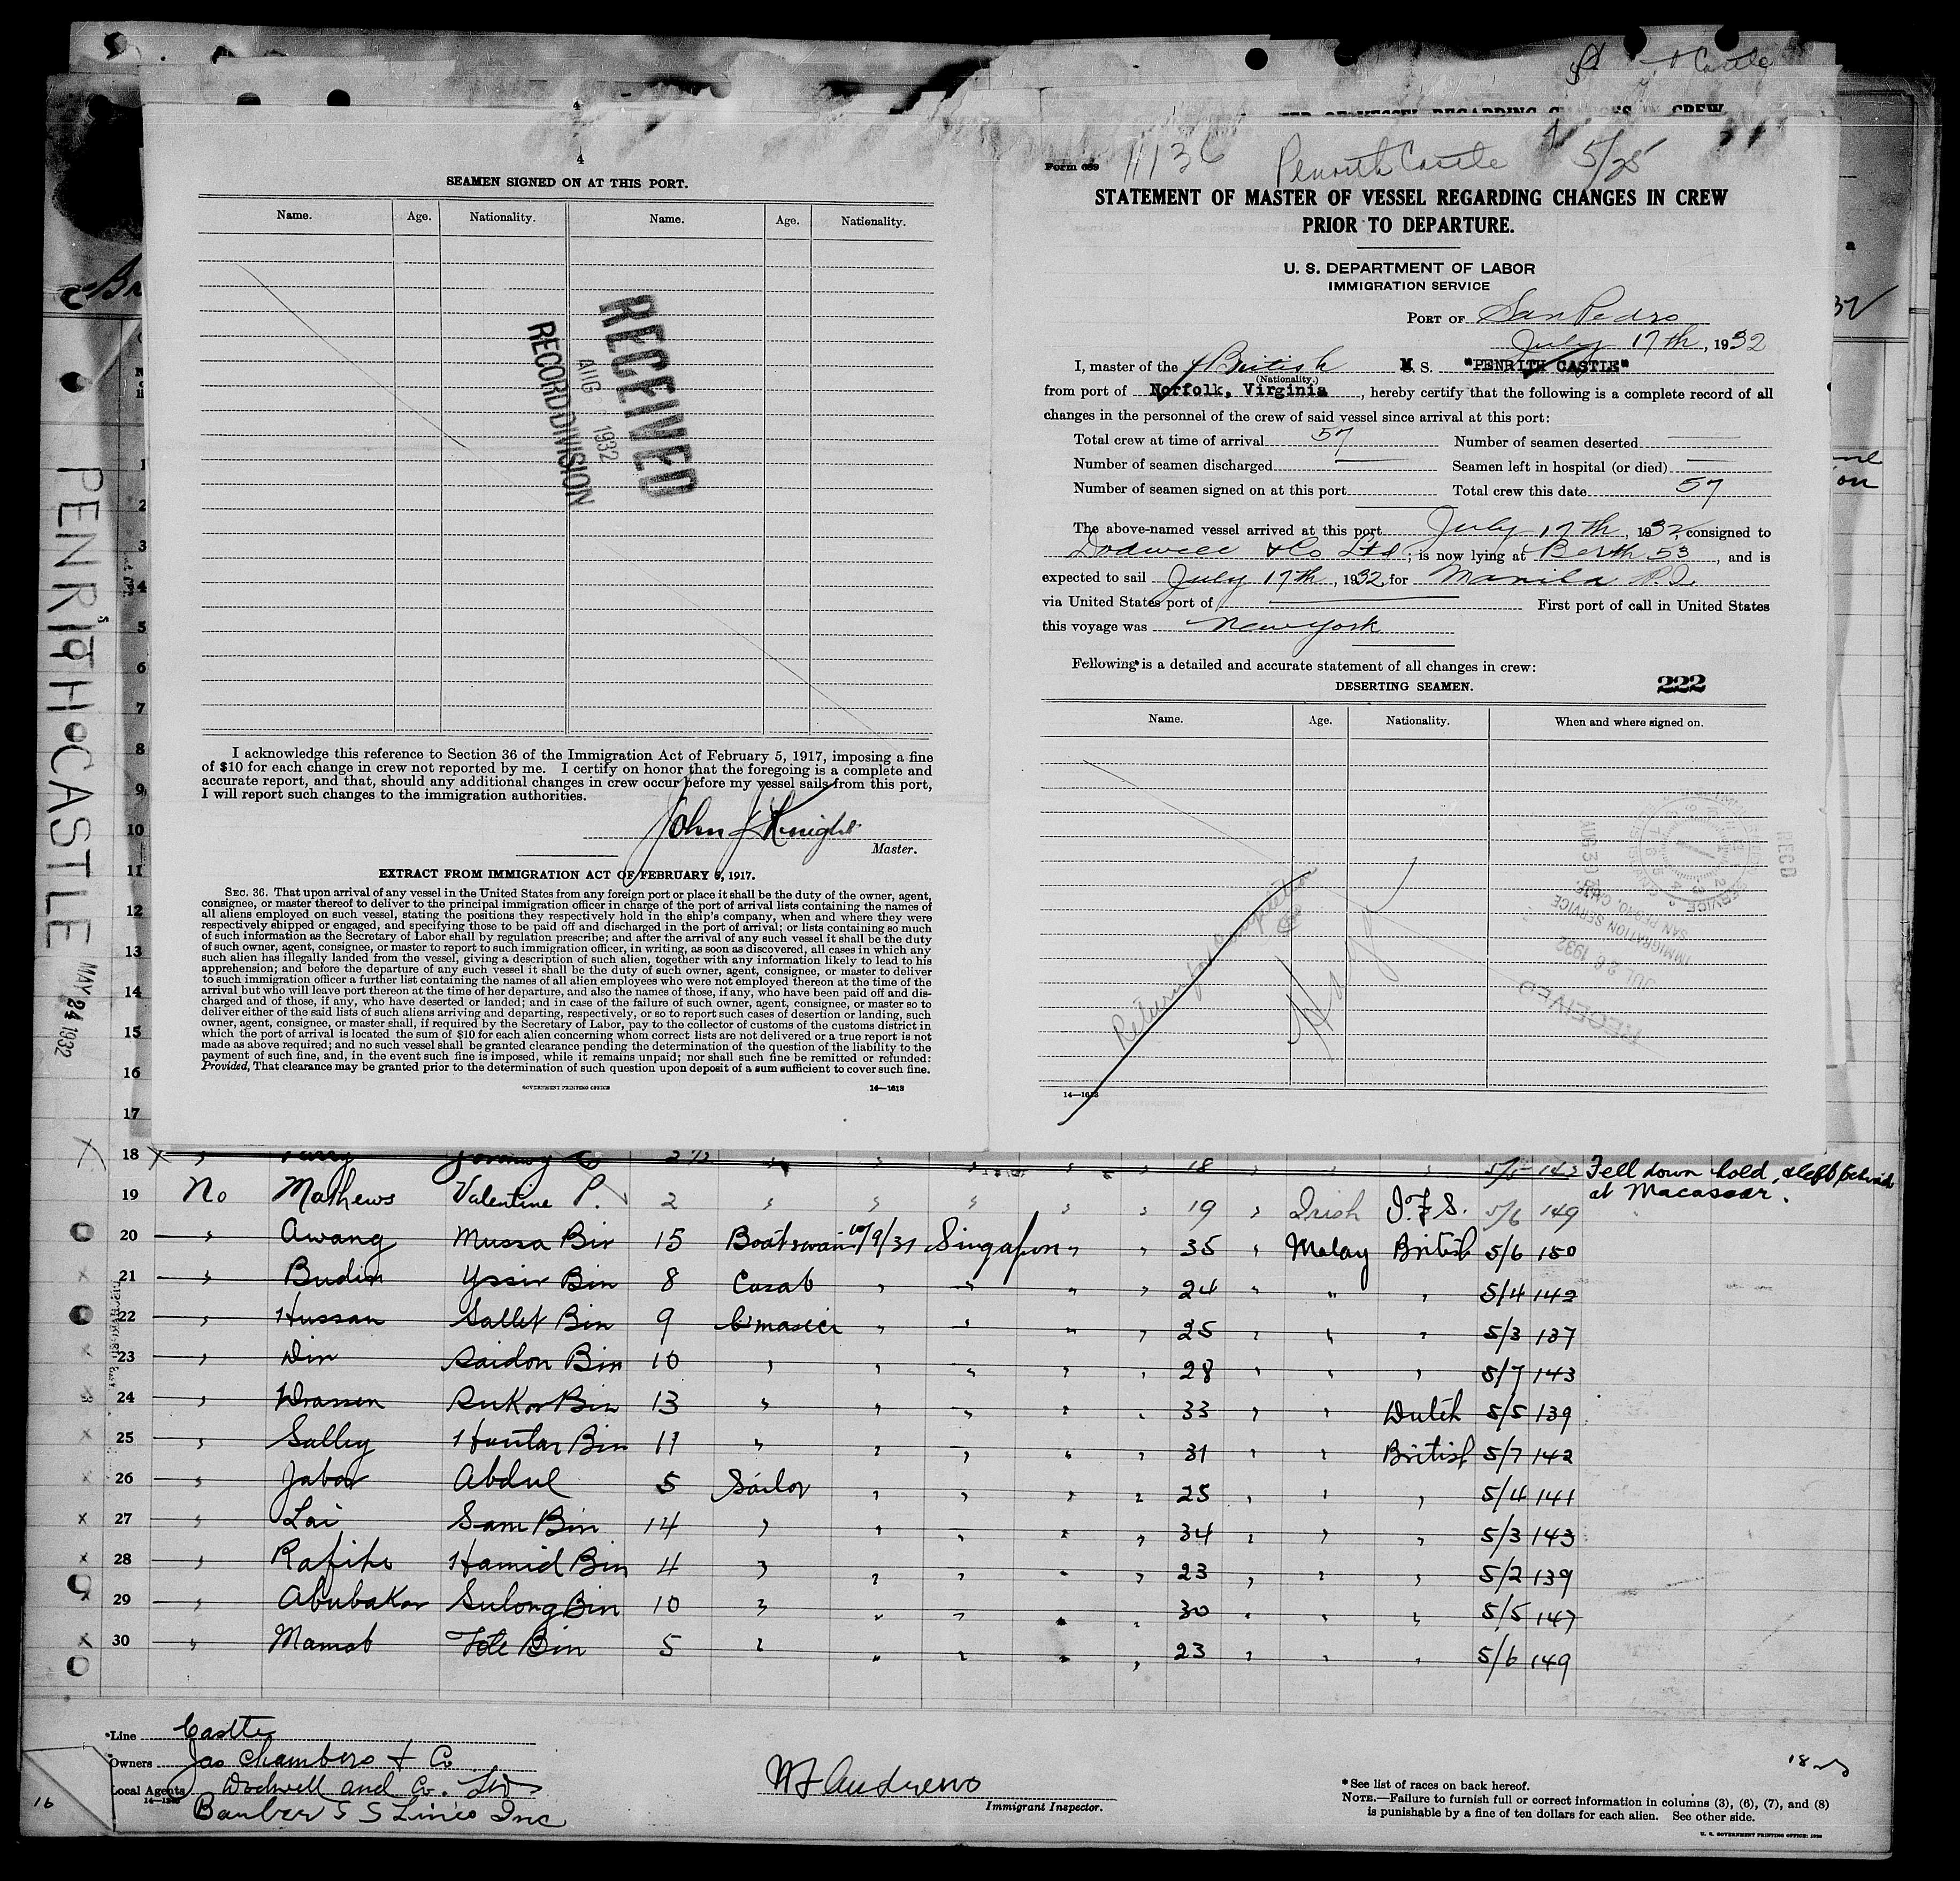 4
SEAMEN SIGNED ON AT THIS PORT.
Name. Age. Nationality. Name. Age. Nationality.
RECEIVED
AUG 1932
RECORD DIVISION
I acknowledge this reference to Section 36 of the Immigration Act of February 5, 1917, imposing a fine
of $10 for each change in crew not reported by me. I certify on honor that the foregoing is a complete and
accurate report, and that, should any additional changes in crew occur before my vessel sails from this port,
I will report such changes to the immigration authorities.
John J Knight
Master.
EXTRACT FROM IMMIGRATION ACT OF FEBRUARY 5, 1917.
SEC. 36. That upon arrival of any vessel in the United States from any foreign port or place it shall be the duty of the owner, agent,
consignee, or master thereof to deliver to the principal immigration officer in charge of the port of arrival lists containing the names of
all aliens employed on such vessel, stating the positions they respectively hold in the ship's company, when and where they were
respectively shipped or engaged, and specifying those to be paid off and discharged in the port of arrival; or lists containing so much
of such information as the Secretary of Labor shall by regulation prescribe; and after the arrival of any such vessel it shall be the duty
of such owner, agent, consignee, or master to report to such immigration officer, in writing, as soon as discovered, all cases in which any
such alien has illegally landed from the vessel, giving a description of such alien, together with any information likely to lead to his
apprehension; and before the departure of any such vessel it shall be the duty of such owner, agent, consignee, or master to deliver
to such immigration officer a further list containing the names of all alien employees who were not employed thereon at the time of the
arrival but who will leave port thereon at the time of her departure, and also the names of those, if any, who have been paid off and dis-
charged and of those, if any, who have deserted or landed; and in case of the failure of such owner, agent, consignee, or master so to
deliver either of the said lists of such aliens arriving and departing, respectively, or so to report such cases of desertion or landing, such
owner, agent, consignee, or master shall, if required by the Secretary of Labor, pay to the collector of customs of the customs district in
which the port of arrival is located the sum of $10 for each alien concerning whom correct lists are not delivered or a true report is not
made as above required; and no such vessel shall be granted clearance pending the determination of the question of the liability to the
payment of such fine, and, in the event such fine is imposed, while it remains unpaid; nor shall such fine be remitted or refunded:
Provided, That clearance may be granted prior to the determination of such question upon deposit of a sum sufficient to cover such fine.
GOVERNMENT PRINTING OFFICE 14—1613
Form 689 11136 Penrith Castle 5/25
STATEMENT OF MASTER OF VESSEL REGARDING CHANGES IN CREW
PRIOR TO DEPARTURE.
U. S. DEPARTMENT OF LABOR
IMMIGRATION SERVICE
PORT OF San Pedro
July 17th, 1932
I, master of the British M S. "PENRITH CASTLE"
(Nationality.)
from port of Norfolk, Virginia, hereby certify that the following is a complete record of all
changes in the personnel of the crew of said vessel since arrival at this port:
Total crew at time of arrival 57 Number of seamen deserted —
Number of seamen discharged — Seamen left in hospital (or died) —
Number of seamen signed on at this port Total crew this date 57
The above-named vessel arrived at this port July 17th, 1932, consigned to
Dodwell & Co Ltd; is now lying at Berth 53, and is
expected to sail July 17th, 1932, for Manila P.I.
via United States port of First port of call in United States
this voyage was New York
Following is a detailed and accurate statement of all changes in crew:
DESERTING SEAMEN. 222
Name. Age. Nationality. When and where signed on.
RECEIVED
JUL 26 1932
IMMIGRATION SERVICE
SAN PEDRO, CALIF.
14—1613
PENRITH CASTLE
MAY 24 1932
1
2
3
4
5
6
7
8
9
10
11
12
13
14
15
16
17
18 18 Fell down hold, & left behind
at Macassar.
19 No Mathews Valentine P. 2 " " " " " 19 " Irish I.F.S. 5/6 149
20 " Awang Mussa Bin 15 Boatswain 10/9/31 Singapore " " 35 " Malay British 5/6 150
21 " Budin Yssin Bin 8 Casab " " " " 24 " " " 5/4 142
22 " Hussan Sallet Bin 9 " " " " 25 " " " 5/3 137
23 " Din Saidon Bin 10 " " " " " 28 " " " 5/7 143
24 " Drassen Sukor Bin 13 " " " " " 33 " " Dutch 5/5 139
25 " Salley Huntar Bin 11 " " " " " 31 " " British 5/7 142
26 " Jabar Abdul 5 Sailor " " " " 25 " " " 5/4 141
27 " Lai Sam Bin 14 " " " " " 34 " " " 5/3 143
28 " Rafiho Hamid Bin 4 " " " " " 23 " " " 5/2 139
29 " Abubakar Sulong Bin 10 " " " " " 30 " " " 5/5 147
30 " Mamat Tole Bin 5 " " " " " 23 " " " 5/6 149
*Line Castle
Owners Jas Chambers & Co
Local Agents Dodwell and Co. Ltd
Barber S S Lines Inc
16
Immigrant Inspector.
*See list of races on back hereof.
NOTE.—Failure to furnish full or correct information in columns (3), (6), (7), and (8)
is punishable by a fine of ten dollars for each alien. See other side.
U. S. GOVERNMENT PRINTING OFFICE: 1930